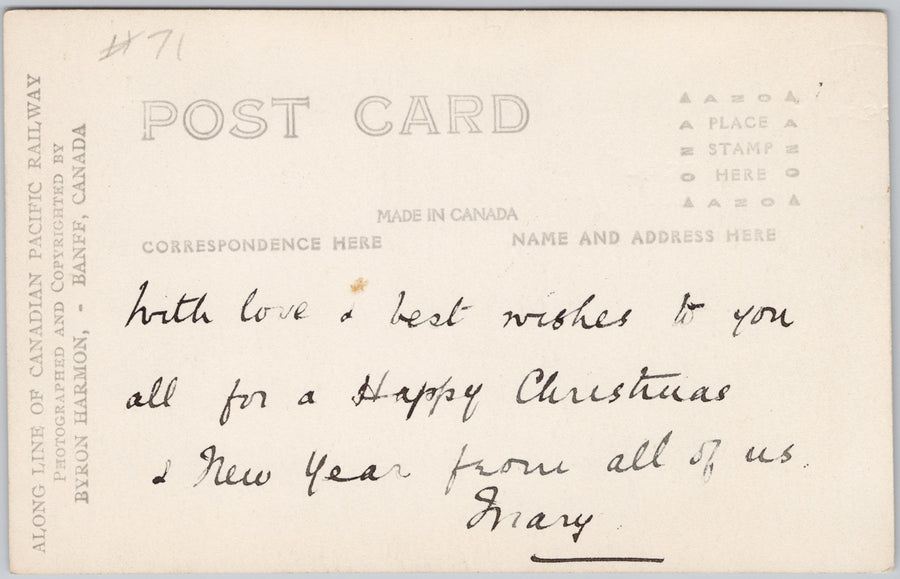 #71
POST CARD
▲ A Z O ▲
A PLACE A
Z STAMP Z
O HERE O
▲ A Z O ▲
MADE IN CANADA
CORRESPONDENCE HERE
NAME AND ADDRESS HERE
ALONG LINE OF CANADIAN PACIFIC RAILWAY
PHOTOGRAPHED AND COPYRIGHTED BY
BYRON HARMON, - BANFF, CANADA
With love & best wishes to you
all for a Happy Christmas
& New Year from all of us.
Mary